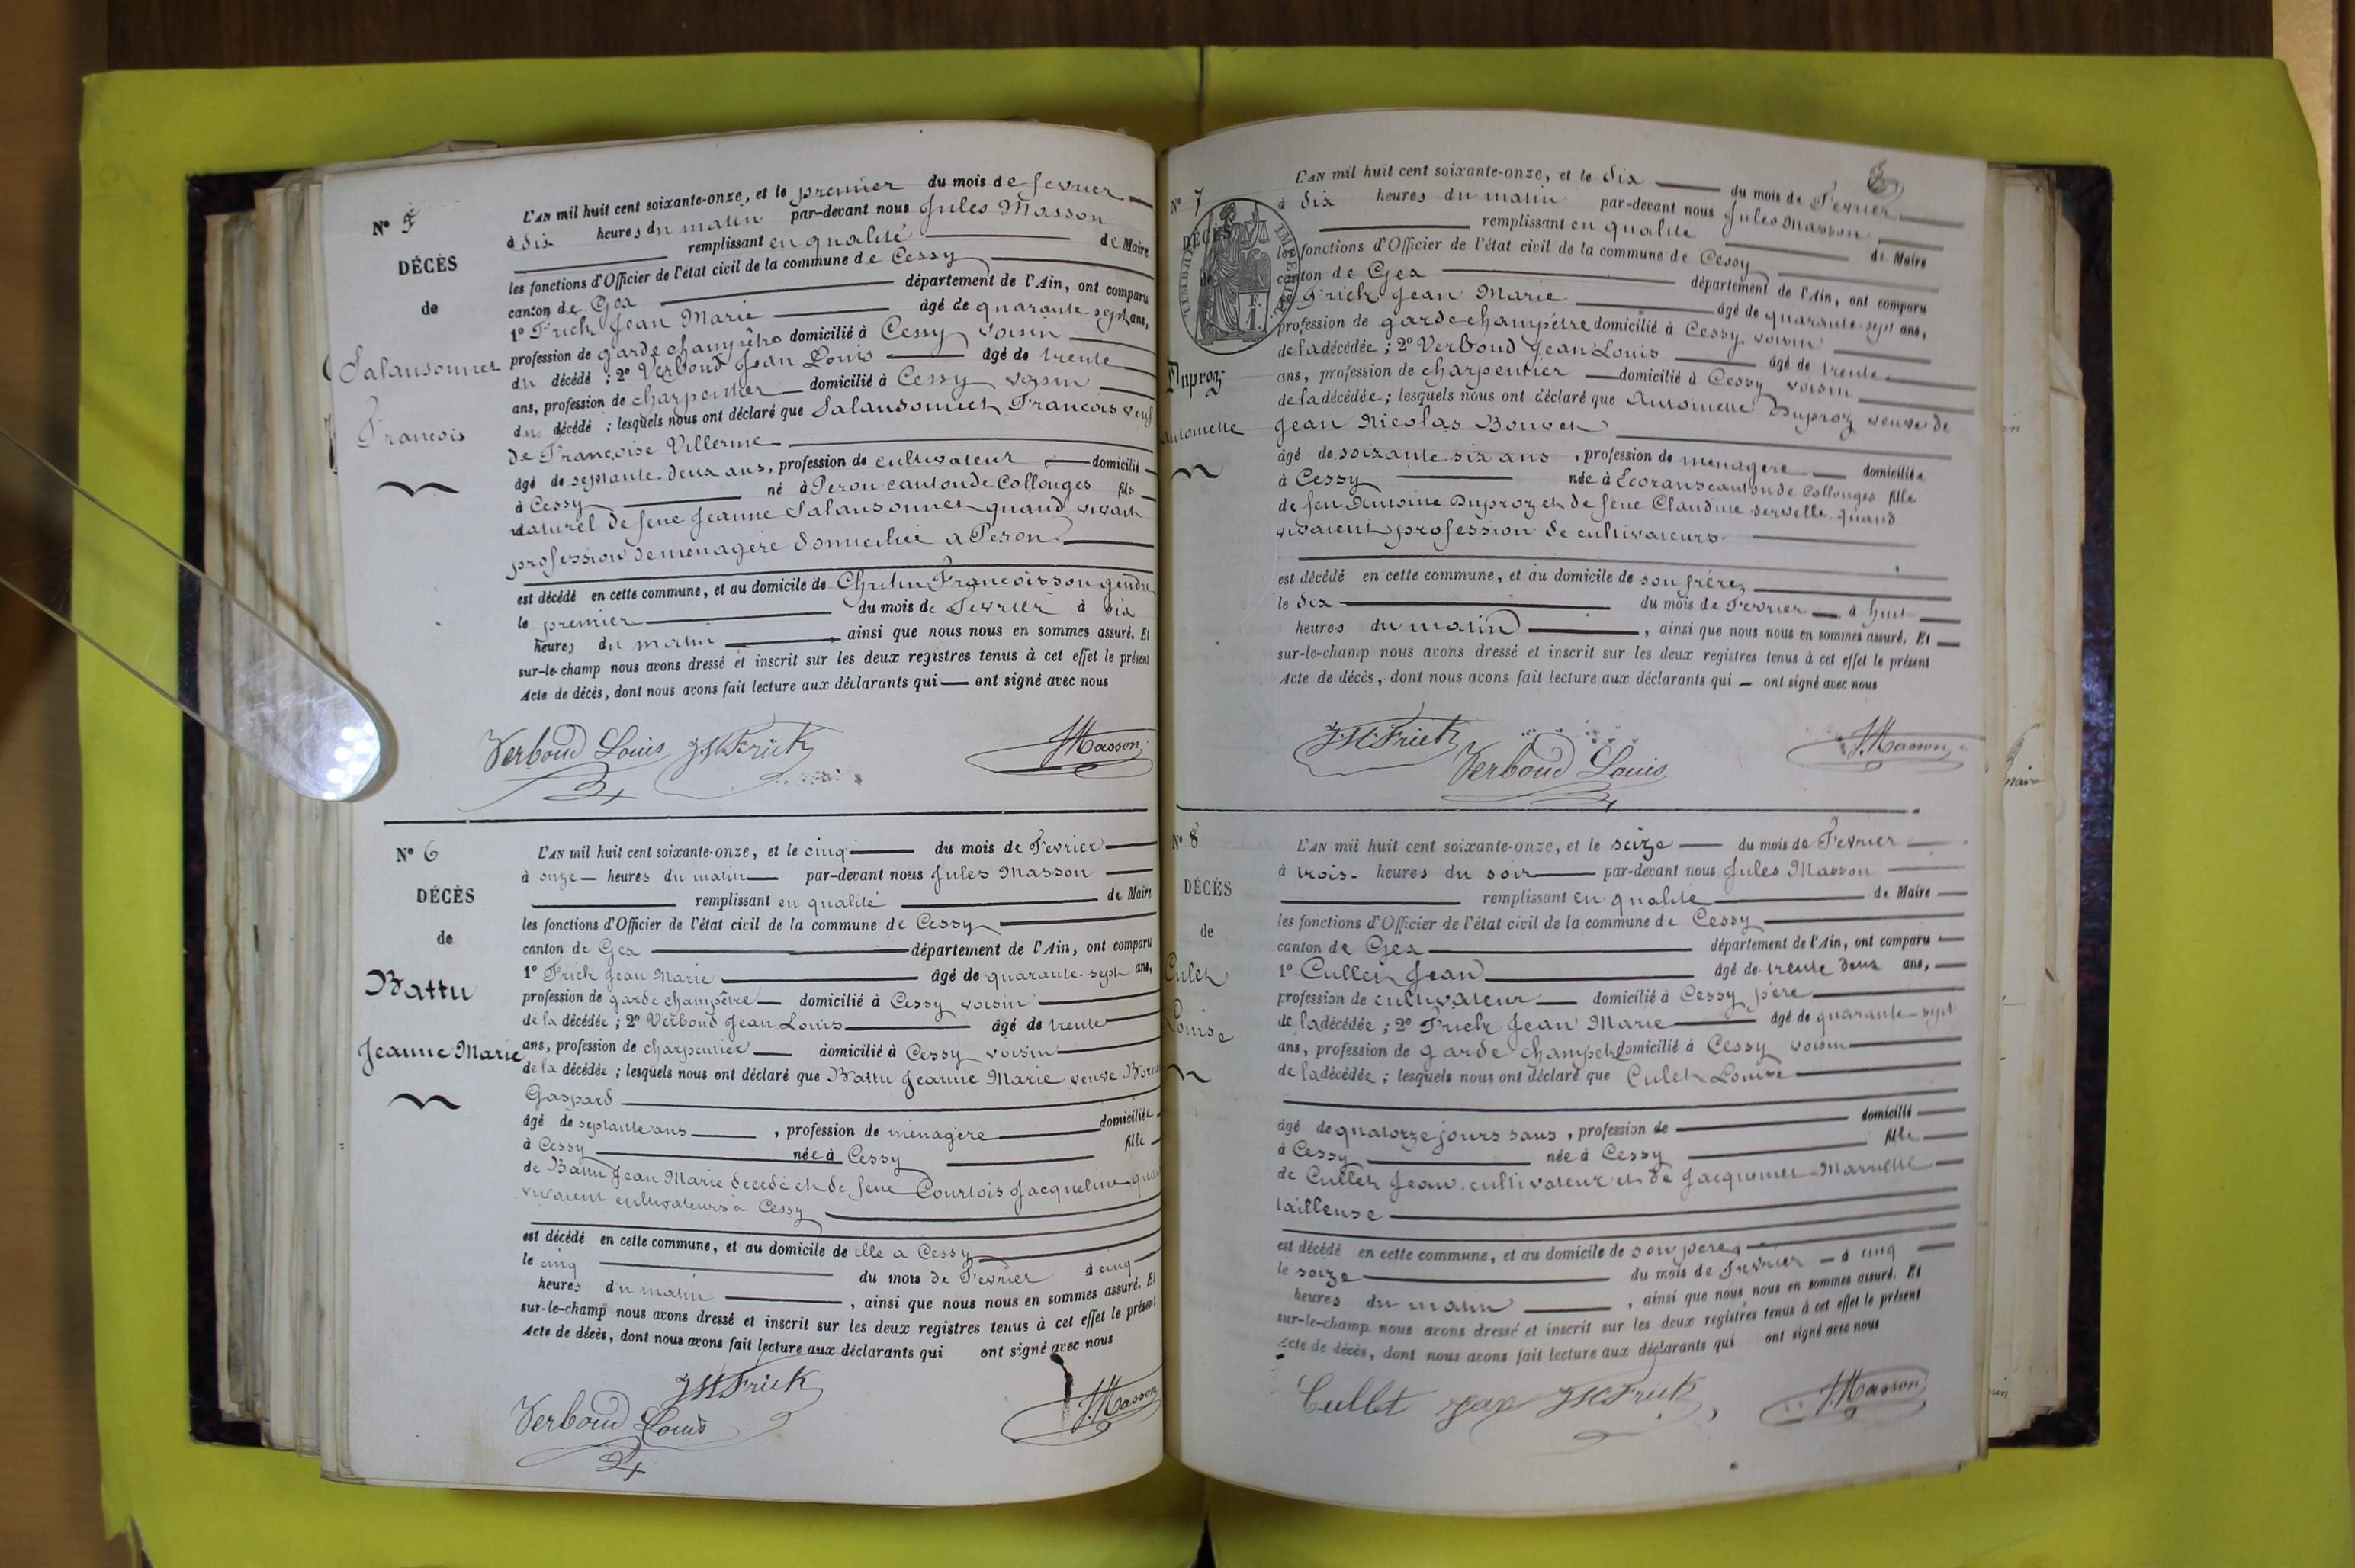 N° 5
DÉCÈS
de
Salansonnet
François
L'AN mil huit cent soixante-onze, et le premier du mois de fevrier
à dix heures du matin par-devant nous Jules Masson
remplissant en qualité de Maire
les fonctions d'Officier de l'état civil de la commune de Cessy
canton de Gex département de l'Ain, ont comparu
1° Frick Jean Marie âgé de quarante-sept ans,
profession de garde champêtre domicilié à Cessy voisin
du décédé ; 2° Verboud Jean Louis âgé de trente
ans, profession de charpentier domicilié à Cessy voisin
du décédé ; lesquels nous ont déclaré que Salansonnet François veuf
de Françoise Villerme
âgé de septante-deux ans, profession de cultivateur domicilié
à Cessy né à Peron canton de Collonges fils
naturel de feue Jeanne Salansonnet quand vivait
profession de menagère domiciliée a Peron.
est décédé en cette commune, et au domicile de François son gendre
le premier du mois de Fevrier à six
heures du matin ainsi que nous nous en sommes assuré. Et
sur-le-champ nous avons dressé et inscrit sur les deux registres tenus à cet effet le présent
Acte de décès, dont nous avons fait lecture aux déclarants qui ont signé avec nous
Verboud Louis JM Frick J. Masson
N° 6
DÉCÈS
de
Battu
Jeanne Marie
L'AN mil huit cent soixante-onze, et le cinq du mois de Fevrier
à onze heures du matin par-devant nous Jules Masson
remplissant en qualité de Maire
les fonctions d'Officier de l'état civil de la commune de Cessy
canton de Gex département de l'Ain, ont comparu
1° Frick Jean Marie âgé de quarante-sept ans,
profession de garde champêtre domicilié à Cessy voisin
de la décédée ; 2° Verboud Jean Louis âgé de trente
ans, profession de charpentier domicilié à Cessy voisin
de la décédée ; lesquels nous ont déclaré que Battu Jeanne Marie veuve
Gaspard
âgé de septante ans , profession de menagère domiciliée
à Cessy née à Cessy fille
de Battu Jean Marie décédé et de feue Courtois Jacqueline
vivaient cultivateurs à Cessy
est décédé en cette commune, et au domicile de elle a Cessy
le cinq du mois de Fevrier à cinq
heures du matin , ainsi que nous nous en sommes assuré. Et
sur-le-champ nous avons dressé et inscrit sur les deux registres tenus à cet effet le présent
Acte de décès, dont nous avons fait lecture aux déclarants qui ont signé avec nous
JM Frick
Verboud Louis J. Masson
N° 7
DÉCÈS
de
Duproz
Antoinette
L'AN mil huit cent soixante-onze, et le dix du mois de Fevrier
à dix heures du matin par-devant nous Jules Masson
remplissant en qualité de Maire
les fonctions d'Officier de l'état civil de la commune de Cessy
canton de Gex département de l'Ain, ont comparu
Frick Jean Marie âgé de quarante-sept ans,
profession de garde champêtre domicilié à Cessy voisin
de la décédée ; 2° Verboud Jean Louis âgé de trente
ans, profession de charpentier domicilié à Cessy voisin
de la décédée ; lesquels nous ont déclaré que Antoinette Duproz veuve de
Jean Nicolas Bouvet
âgé de soixante-six ans , profession de menagère domiciliée
à Cessy née à Ecorans canton de Collonges fille
de feu Antoine Duproz et de feue Claudine Servelle quand
vivaient profession de cultivateurs.
est décédé en cette commune, et au domicile de son frère,
le dix du mois de Fevrier à huit
heures du matin , ainsi que nous nous en sommes assuré. Et
sur-le-champ nous avons dressé et inscrit sur les deux registres tenus à cet effet le présent
Acte de décès, dont nous avons fait lecture aux déclarants qui ont signé avec nous
JM Frick Verboud Louis J. Masson
N° 8
DÉCÈS
de
Culet
Louise
L'AN mil huit cent soixante-onze, et le seize du mois de Fevrier
à trois heures du soir par-devant nous Jules Masson
remplissant en qualité de Maire
les fonctions d'Officier de l'état civil de la commune de Cessy
canton de Gex département de l'Ain, ont comparu
1° Cullet Jean âgé de trente deux ans,
profession de cultivateur domicilié à Cessy père
de la décédée ; 2° Frick Jean Marie âgé de quarante-sept
ans, profession de garde champetre domicilié à Cessy voisin
de la décédée ; lesquels nous ont déclaré que Culet Louise
âgé de quatorze jours sans , profession de domicilié
à Cessy née à Cessy fille
de Cullet Jean, cultivateur et de Jacquinet Mariette
tailleuse
est décédé en cette commune, et au domicile de son père,
le seize du mois de Fevrier à cinq
heures du matin , ainsi que nous nous en sommes assuré. Et
sur-le-champ nous avons dressé et inscrit sur les deux registres tenus à cet effet le présent
Acte de décès, dont nous avons fait lecture aux déclarants qui ont signé avec nous
Cullet JM Frick J. Masson